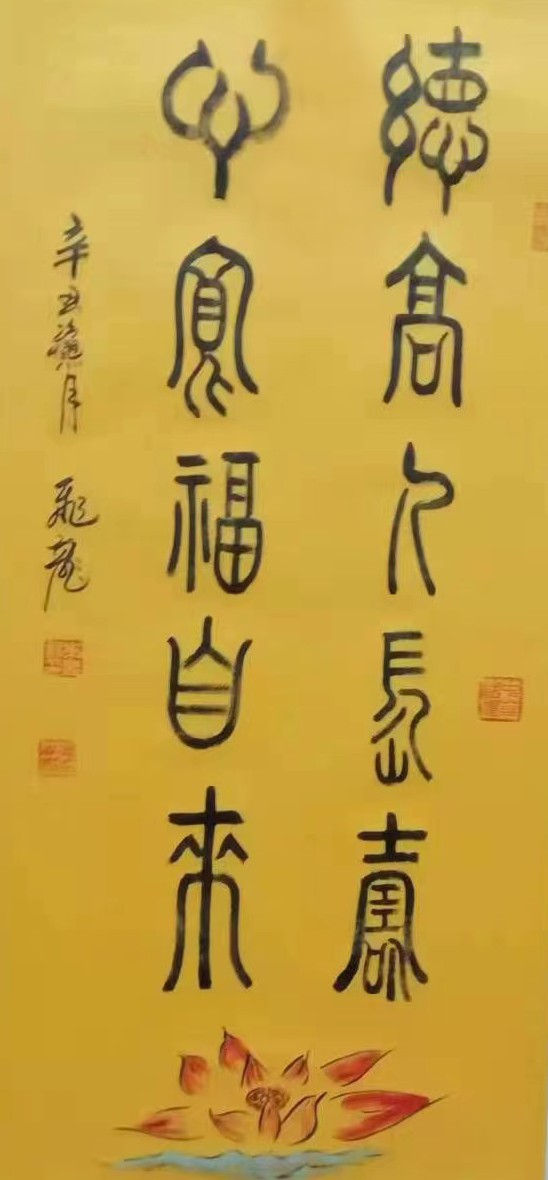 德高人長壽
心寬福自來
辛丑臘月 飛龍